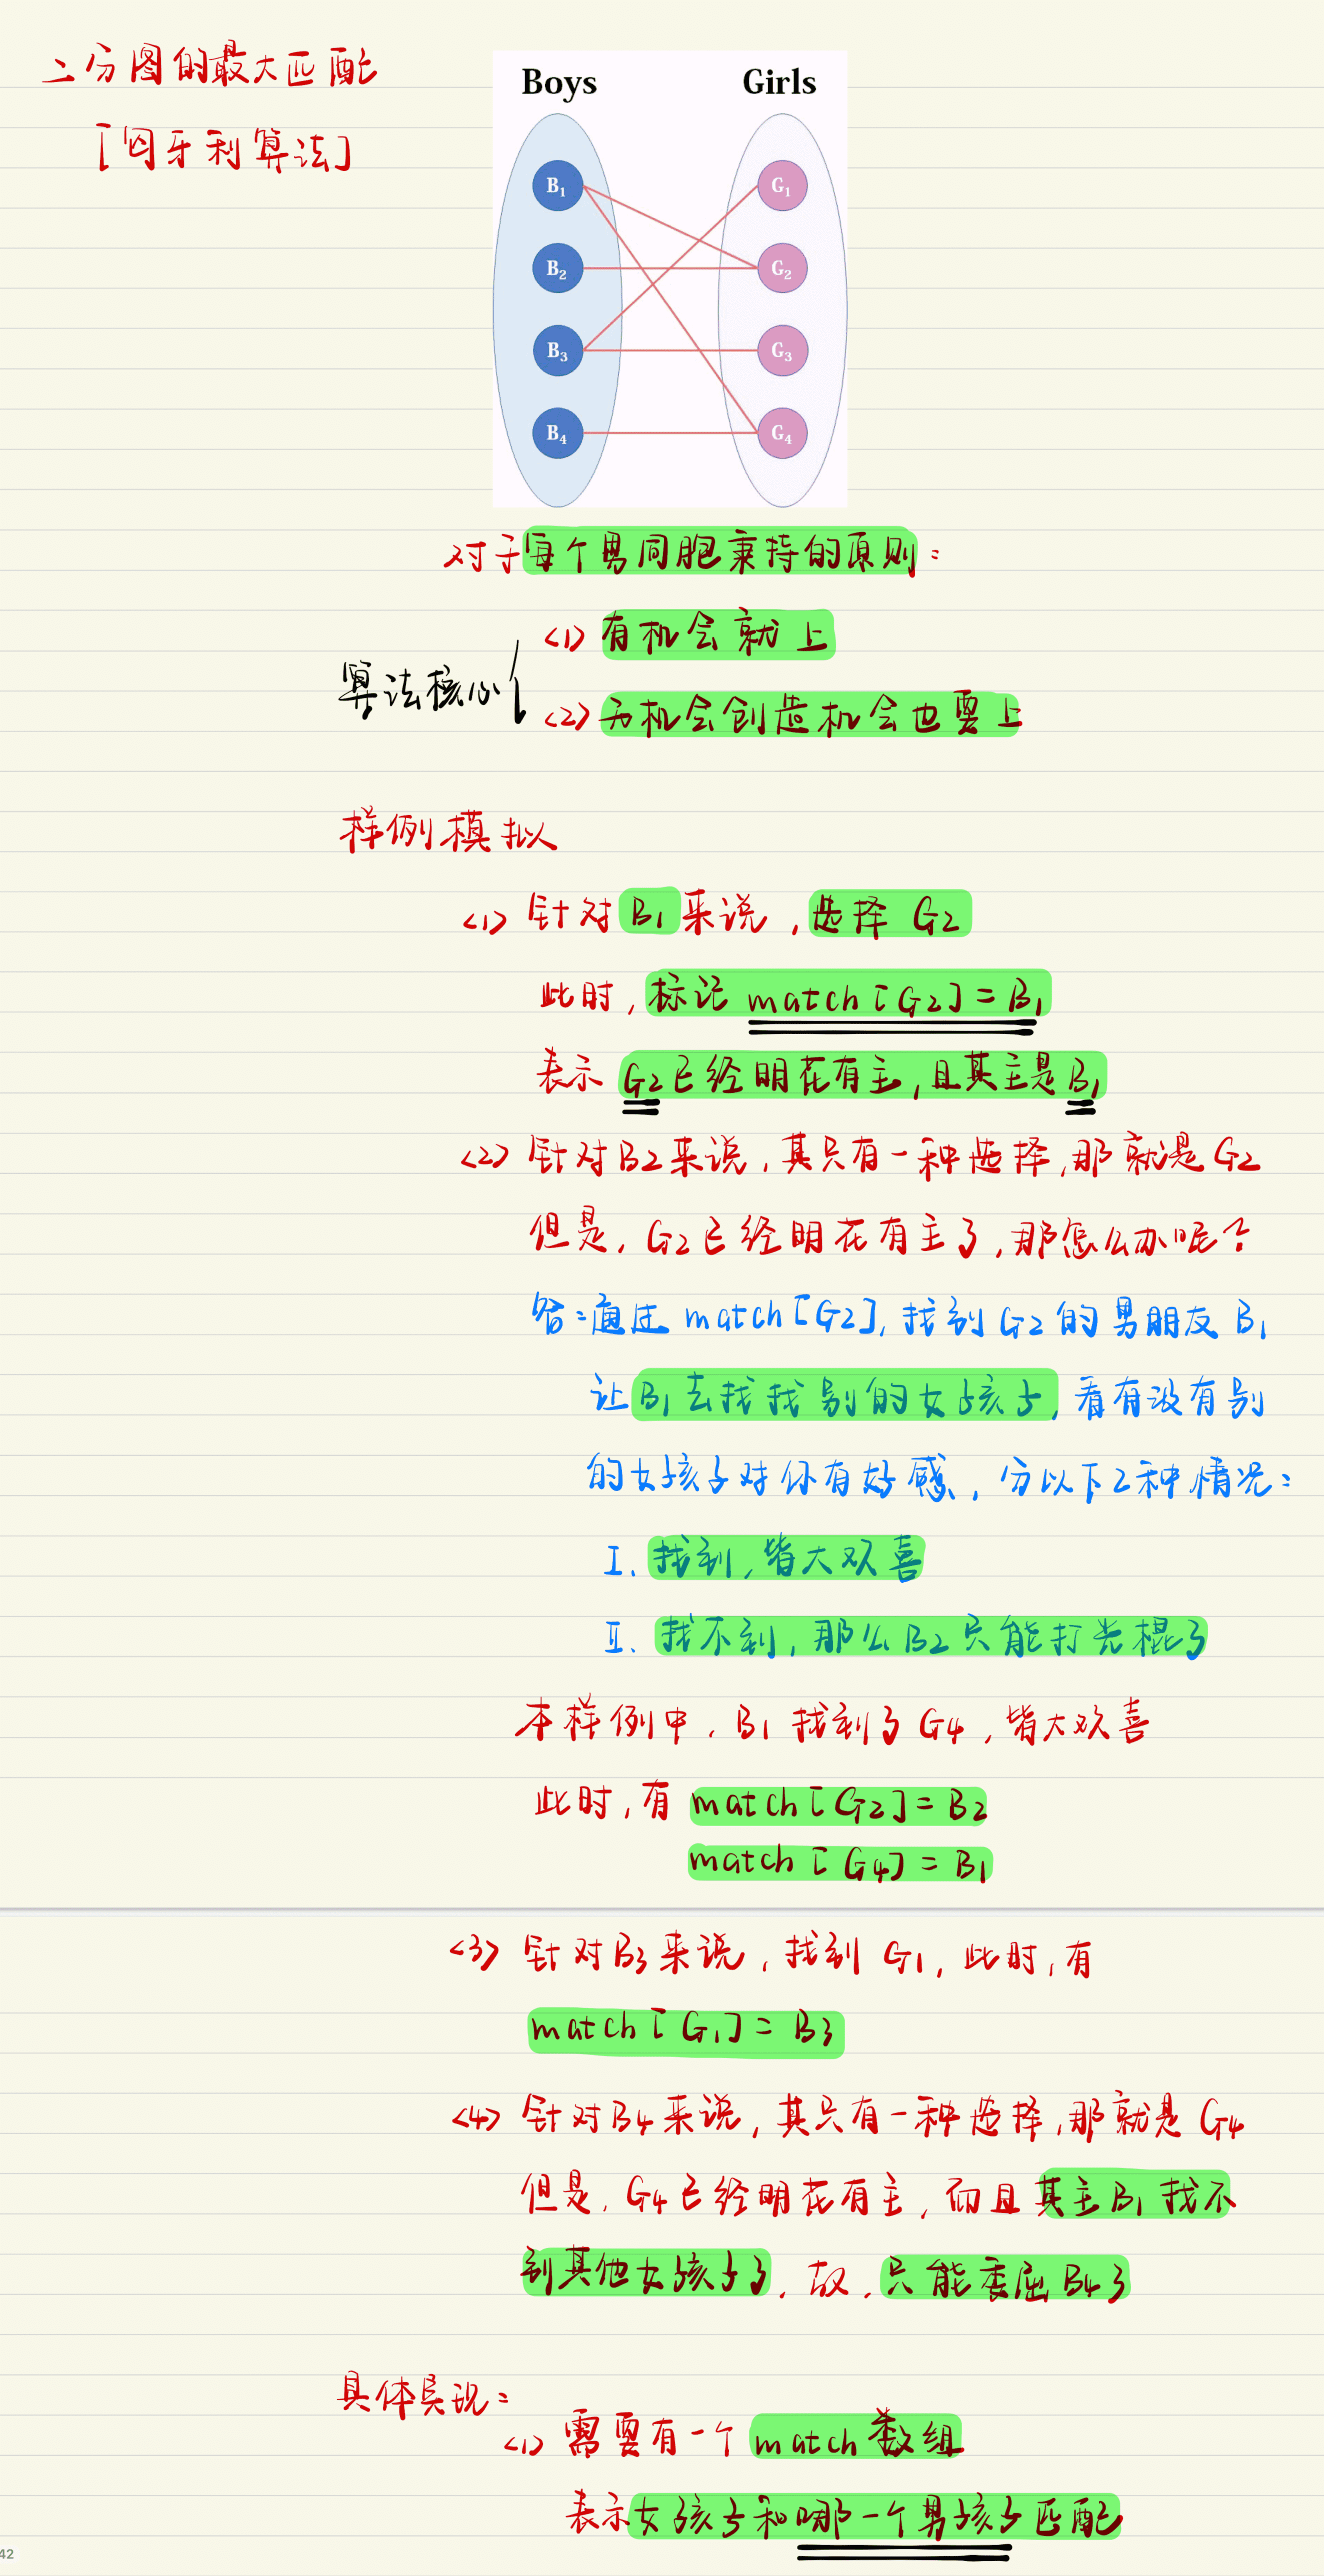 二分图的最大匹配
[匈牙利算法]
Boys Girls
B1 G1
B2 G2
B3 G3
B4 G4
对于每个男同胞秉持的原则：
算法核心{
<1> 有机会就上
<2> 无机会创造机会也要上
样例模拟
<1> 针对B1来说，选择 G2
此时，标记 match[G2]=B1
表示 G2已经明花有主，且其主是B1
<2> 针对B2来说，其只有一种选择，那就是G2
但是，G2已经明花有主了，那怎么办呢？
答：通过 match[G2]，找到G2的男朋友B1
让B1去找找别的女孩子，看有没有别
的女孩子对你有好感，分以下2种情况：
I. 找到，皆大欢喜
II. 找不到，那么B2只能打光棍了
本样例中，B1找到了G4，皆大欢喜
此时，有 match[G2]=B2
match[G4]=B1
<3> 针对B3来说，找到 G1，此时，有
match[G1]=B3
<4> 针对B4来说，其只有一种选择，那就是G4
但是，G4已经明花有主，而且其主B1找不
到其他女孩子了，故，只能委屈B4了
具体实现：
<1> 需要有一个match数组
表示女孩子和哪一个男孩子匹配
42